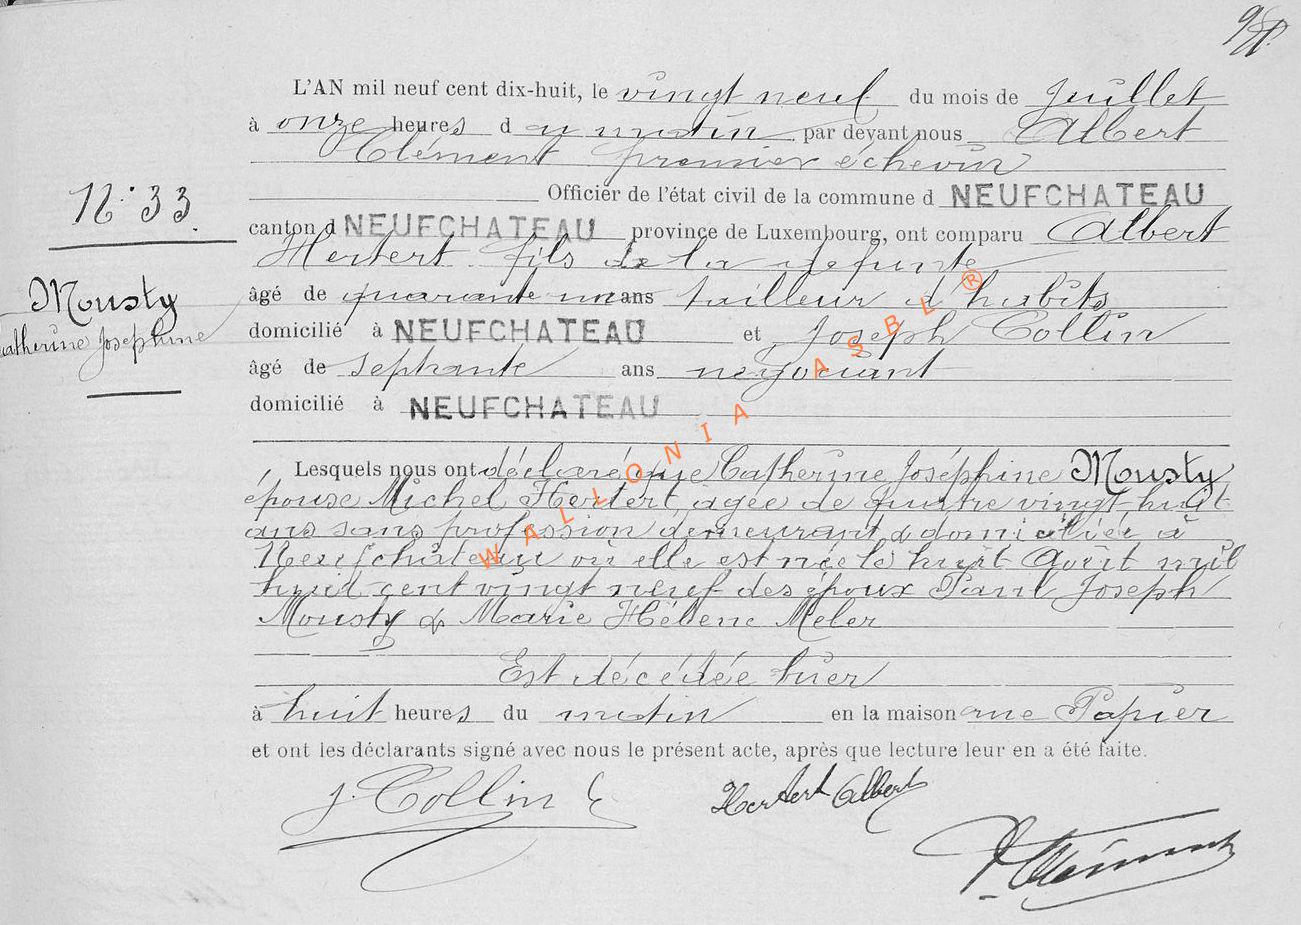 L'AN mil neuf cent dix-huit, le vingt neuf du mois de Juillet
à onze heures du matin par devant nous Albert
Clément premier échevin
Officier de l'état civil de la commune d NEUFCHATEAU
N° 33.
canton d NEUFCHATEAU province de Luxembourg, ont comparu Albert
Hertert fils de la défunte
Mousty
Catherine Josephine
âgé de quarante un ans tailleur d'habits
domicilié à NEUFCHATEAU et Joseph Collin
âgé de septante ans negociant
domicilié à NEUFCHATEAU
WALLONIA ASBL ®
Lesquels nous ont déclaré que Catherine Joséphine Mousty
épouse Michel Hertert, agée de quatre vingt huit
ans sans profession demeurant & domiciliée à
Neufchâteau où elle est née le huit Août mil
huit cent vingt neuf des époux Paul Joseph
Mousty & Marie Hélène Meler
Est décédée hier
à huit heures du matin en la maison rue Papier
et ont les déclarants signé avec nous le présent acte, après que lecture leur en a été faite.
J. Collin Hertert Albert
Clément